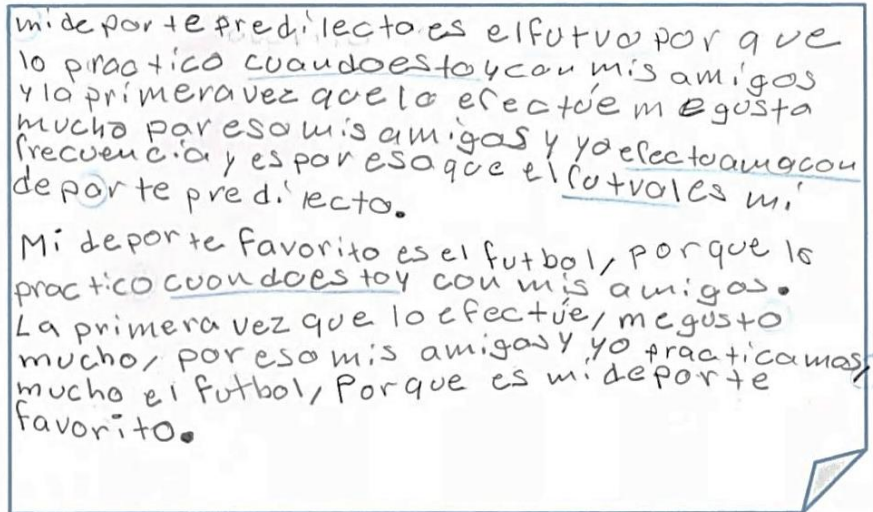 mi deporte predilecto es elfutvo por que
lo practico cuandoestoycon mis amigos
y la primera vez que lo efectúe me gusta
mucho por eso mis amigos y yo efectuamacon
frecuencia y es por eso que el futvoles mi
deporte predilecto.
Mi deporte favorito es el futbol, porque lo
practico cuandoestoy con mis amigos.
La primera vez que lo efectúe, me gusto
mucho, por eso mis amigos y yo practicamos,
mucho el futbol, Porque es mi deporte
favorito.